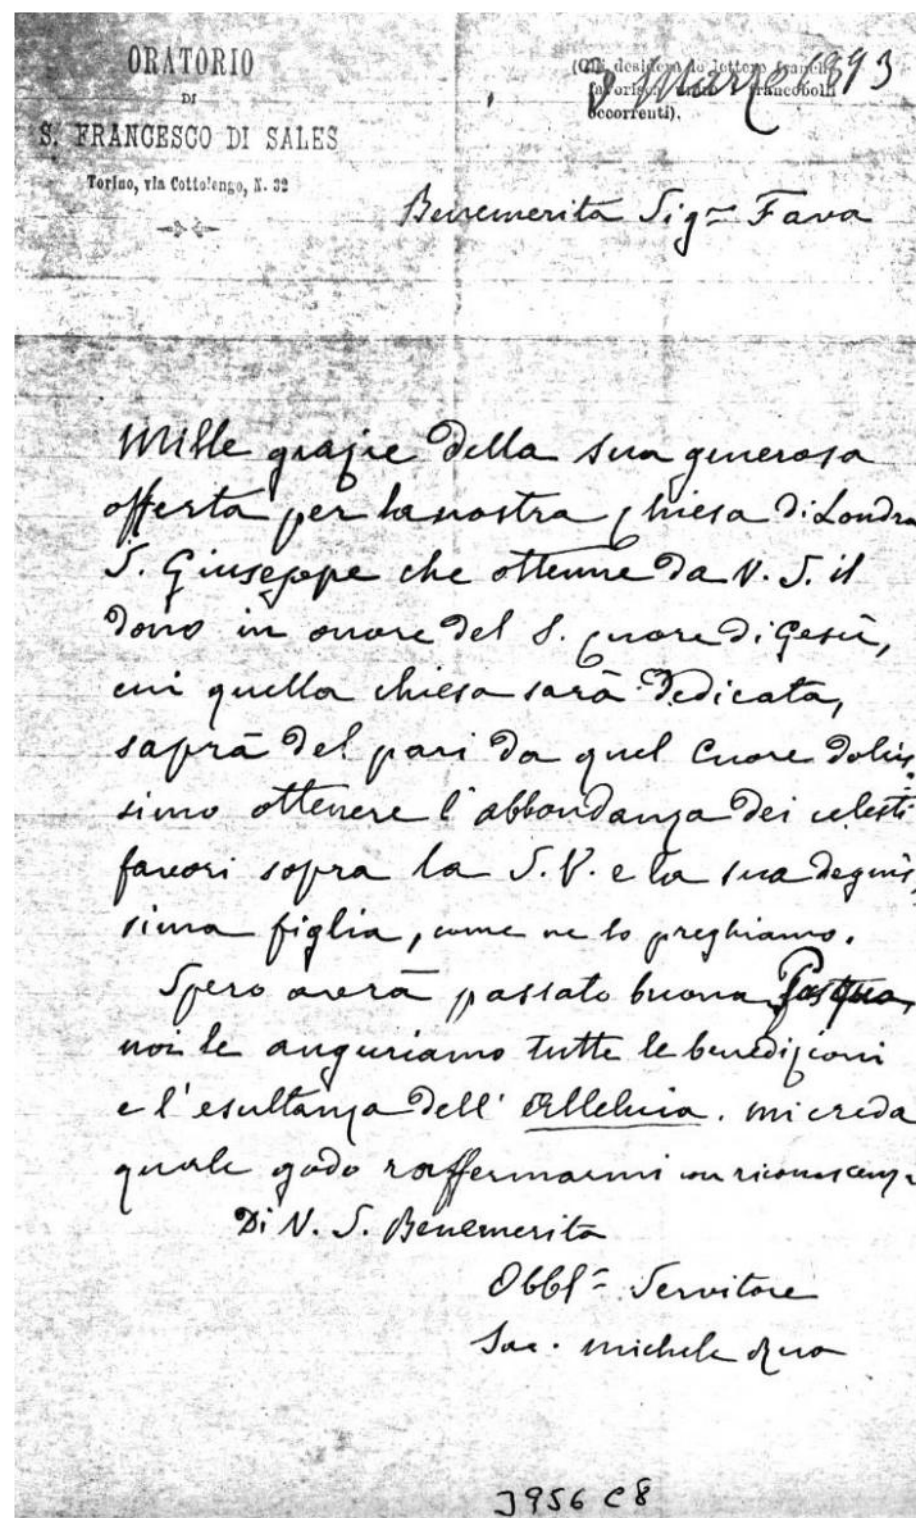 ORATORIO
DI
S. FRANCESCO DI SALES
Torino, via Cottolengo, N. 32
(Chi desidera lettere
favorisca francobolli
occorrenti).
Marzo 1893
Benemerita Sig.ra Fava
Mille grazie della sua generosa
offerta per la nostra chiesa di Londra
S. Giuseppe che ottenne da V. S. il
dono in onore del S. Cuore di Gesù,
cui quella chiesa sarà dedicata,
saprà del pari da quel Cuore dolcis
simo ottenere l'abbondanza dei celesti
favori sopra la S. V. e la sua degnis
sima figlia, come ne lo preghiamo.
Spero avrà passato buona Pasqua,
noi le auguriamo tutte le benedizioni
e l'esultanza dell' Alleluia. Mi creda
quale godo raffermarmi con riconoscenza
Di V. S. Benemerita
Obbl.mo Servitore
Sac. Michele Rua
J956 C8